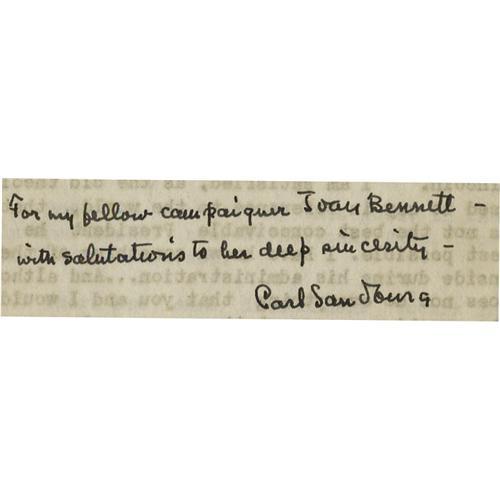 For my fellow campaigner Joan Bennett –
with salutations to her deep sincerity –
Carl Sandburg